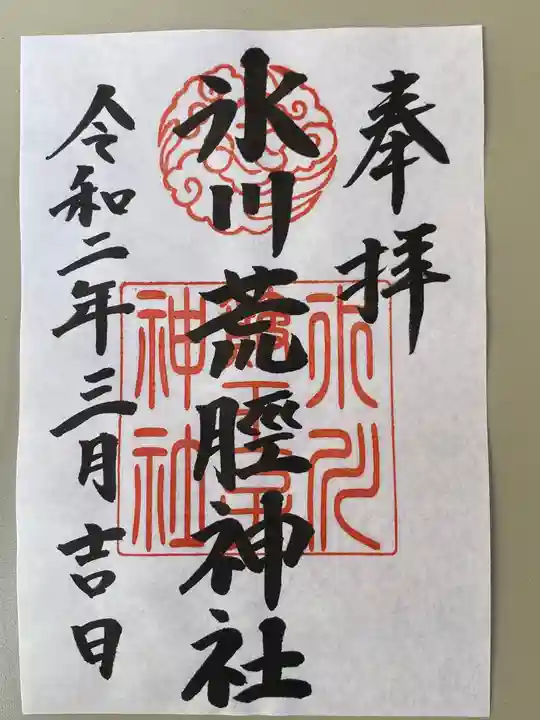 奉拝
氷川荒脛神社
令和二年三月吉日
氷川
神社